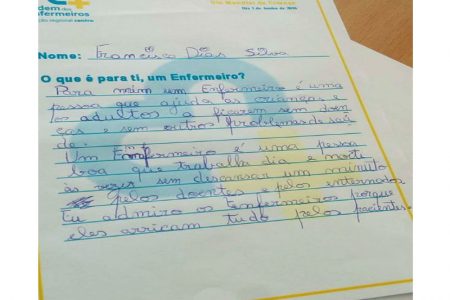 dem dos
nfermeiros
ção regional centro
Dia 1 de Junho de
Nome: Francisco Dias Silva
O que é para ti, um Enfermeiro?
Para mim um Enfermeiro é uma
pessoa que ajuda as crianças e
os adultos a ficarem sem doen
ças e sem outros problemas de saú
de.
Um Enfermeiro é uma pessoa
boa que trabalha dia e noite
às vezes sem descansar um minuto
pelos doentes e pelos enternados
Eu admiro os enfermeiros porque
eles arricam tudo pelos pacientes.